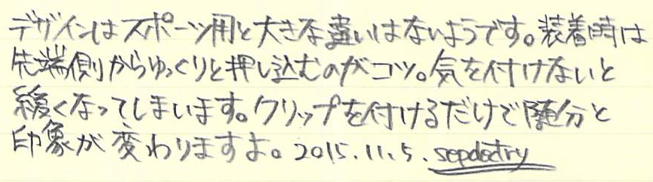 デザインはスポーツ用と大きな違いはないようです。装着時は
先端側からゆっくりと押し込むのがコツ。気を付けないと
緩くなってしまいます。クリップを付けるだけで随分と
印象が変わりますよ。2015.11.5.